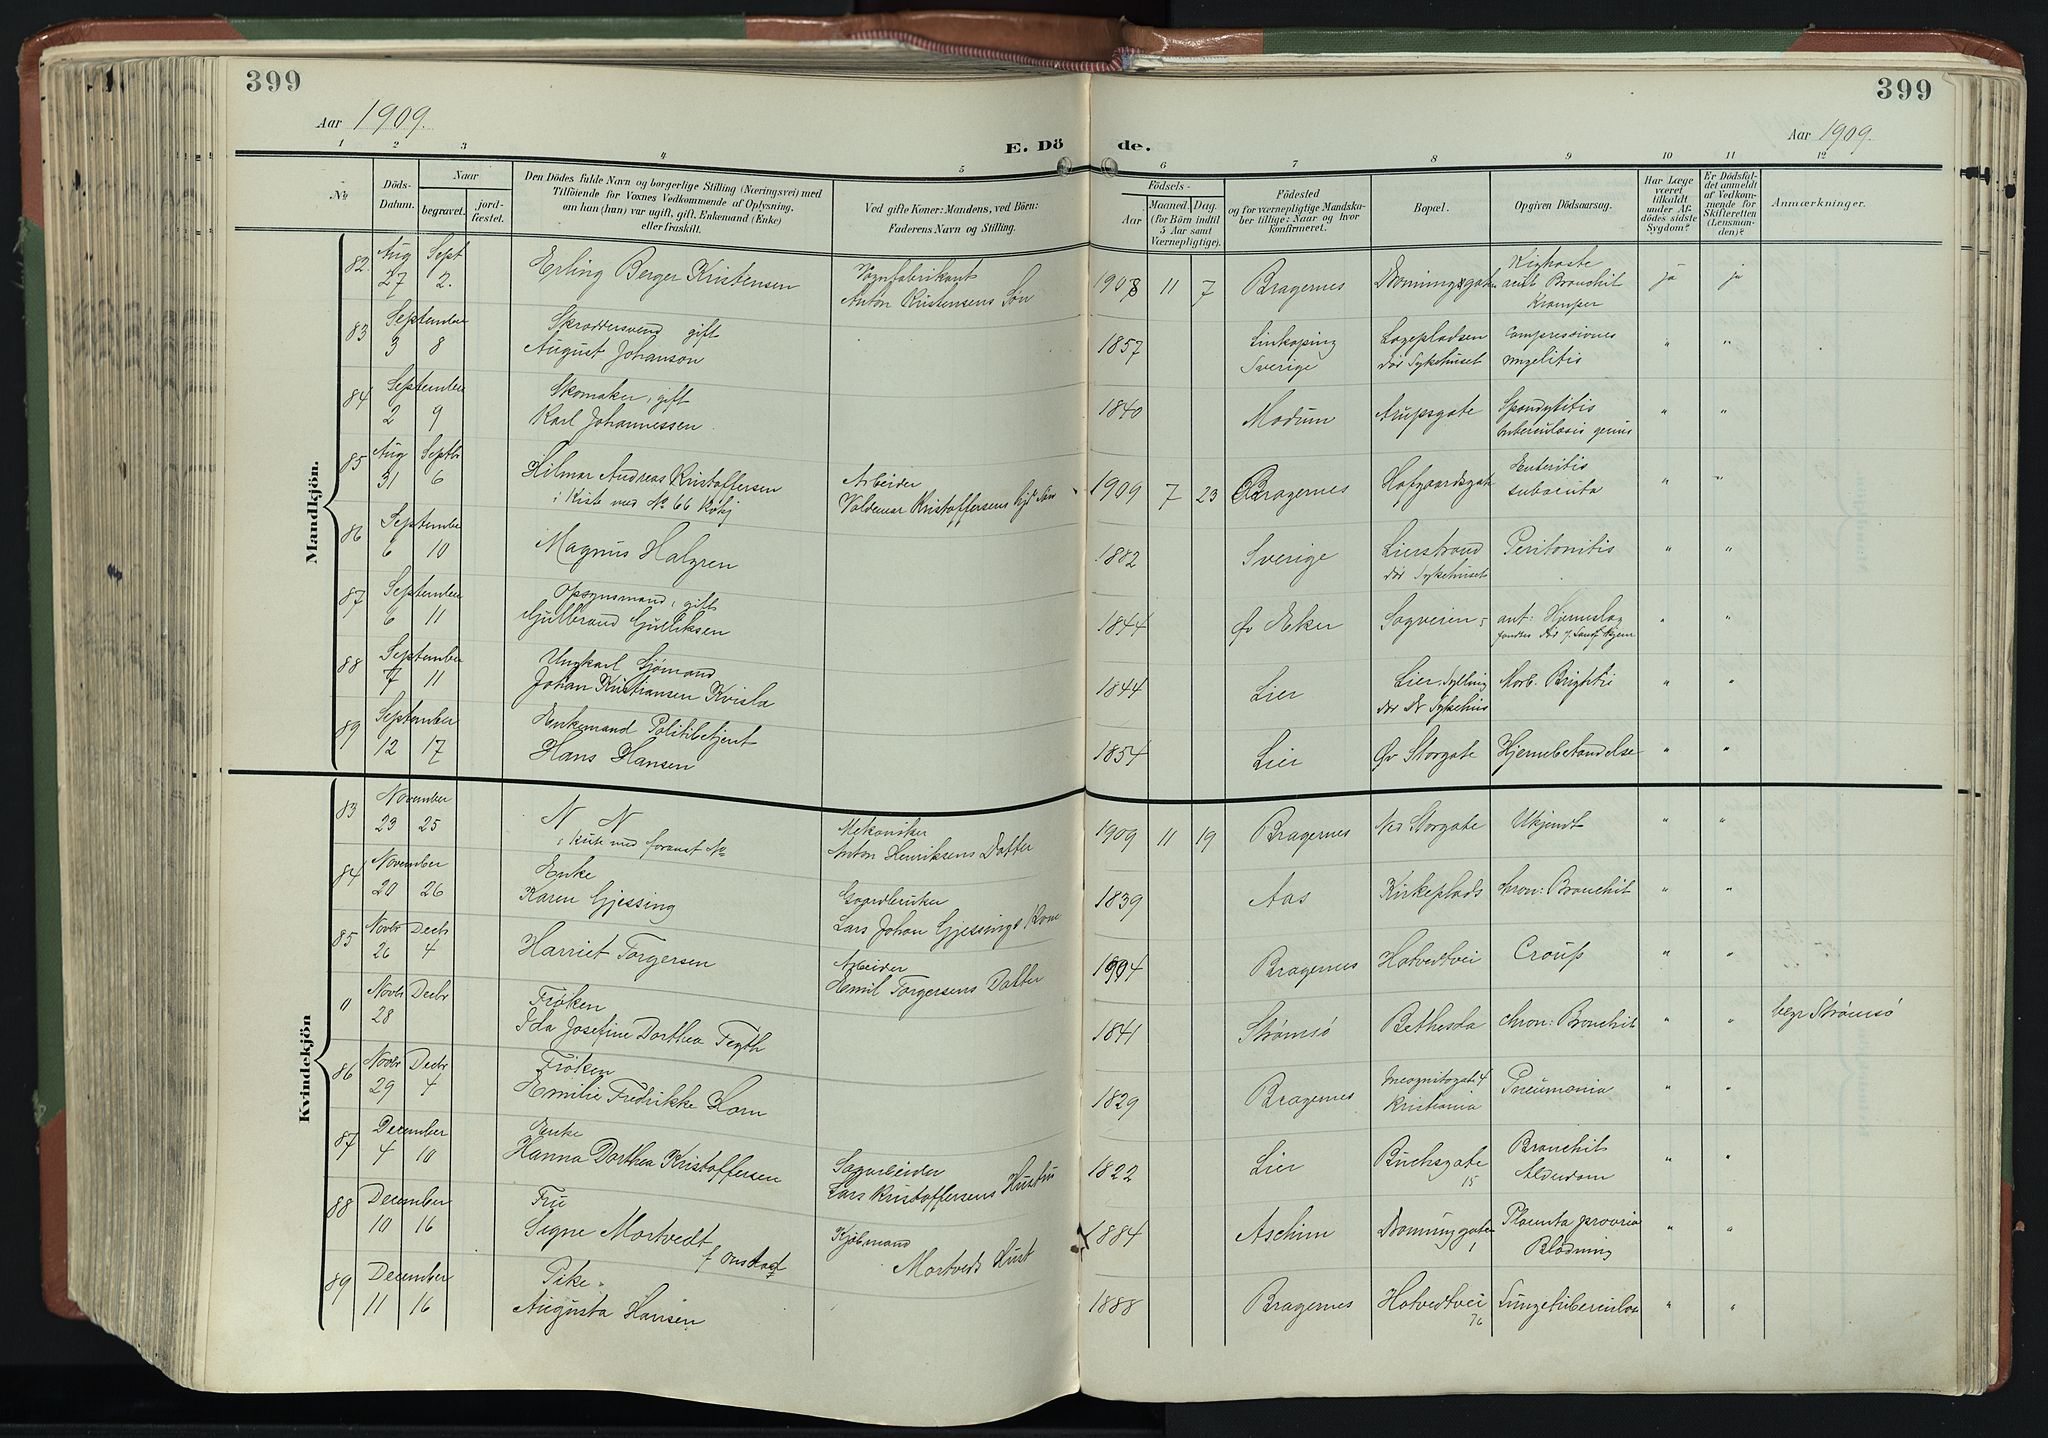 399
399
Aar 1909.
E. Döde.
Aar 1909.
1 2 3 4 5 6 7 8 9 10 11 12
No
Döds-Datum.
Naar
begravet.
jord-fæstet.
Den Dödes fulde Navn og borgerlige Stilling (Næringsvei) med
Tilföiende for Voxnes Vedkommende af Oplysning,
om han (hun) var ugift, gift, Enkemand (Enke)
eller fraskilt.
Ved gifte Koner: Mandens, ved Börn:
Faderens Navn og Stilling.
Födsels-
Aar
Maaned. Dag.
(for Börn indtil
5 Aar samt
Værnepligtige).
Födested
og for værnepligtige Mandska-
ber tillige: Naar og hvor
konfirmeret.
Bopæl.
Opgiven Dödsaarsag.
Har Læge
været
tilkaldt
under Af-
dödes sidste
Sygdom?
Er Dödsfal-
det anmeldt
af Vedkom-
mende for
Skifteretten
(Lensman-
den)?
Anmærkninger.
Mandkjön.
82. Aug 27 Sept 2. Erling Berger Kristensen
Vognfabrikant
Anton Kristensens Søn
1908 11 7 Bragernes
Kighoste
acut Bronchit
Kramper
ja ja
83 September 3 8
Skræddersvend gift
August Johanson
1857 Linkøping
Sverige
Lagepladsen
død Sykehuset
Compressiones
myelitis
" "
84 September 2 9
Skomaker, gift
Karl Johannessen
1840 Modum
Arupsgate
Spondytitis
tuberculosis genus
" "
85 Aug 31 Septb 6
Hilmar Andreas Kristoffersen
i Kiste med No 66 Kvkj
Arbeider
Valdemar Kristoffersens Søn
1909 7 23 Bragernes
Hofgaardsgate
Enteritis
subacuta
" "
86 September 6 10
Magnus Halgren
1882 Sverige
Lierstrand
død Sykehuset
Peritonitis
" "
87 September 6 11
Opsynsmand, gift
Gulbrand Gulliksen
1844 Øv Eker
Sagveien
ant: Hjerneslag
" "
88 September 7 11
Ungkarl Sjømand
Johan Kristiansen Kvisla
1844 Lier
Lier, Sylling
død Dr Sykehus
Morb. Brightii
" "
89 September 12 17
Enkemand Politibetjent
Hans Hansen
1854 Lier
Øv Storgate
Hjernebetændelse
" "
Kvindekjön
83 November 23 25
N N
i Kiste med foranst No
Mekaniker
Anton Henriksens Datter
1909 11 19 Bragernes
Ned Storgate
Ukjendt
" "
84 November 20 26
Enke
Karen Gjessing
Gaardbruker
Lars Johan Gjessings Kone
1839 Aas
Kirkeplads
chron: Bronchit
" "
85 Novbr 26 Decb 4
Harriet Torgersen
Arbeider
Emil Torgersens Datter
1904 Bragernes
Hotvedtvei
Croup
" "
" Novbr 28 Decbr
Frøken
Ida Josefine Dorthea Tegth
1841 Strømsø
Bethesda
chron: Bronchit
" "
begr Strømsø
86 Novbr 29 Decbr 4
Frøken
Emilie Fredrikke Horn
1829 Bragernes
Incognitogate 4
Kristiania
Pneumonia
" "
87 December 4 10
Enke
Hanna Dorthea Kristoffersen
Sagarbeider
Lars Kristoffersens Hustru
1822 Lier
Buchsgate
15
Bronchit
Alderdom
" "
88 December 10 16
Fru
Signe Mortvedt
f Onstad
Kjøbmand
Mortveds Hust
1884 Aschim
1
Placenta prævia
Blødning
" "
89 December 11 16
Pike
Augusta Hansen
1888 Bragernes
Hotvedtvei
76
" "